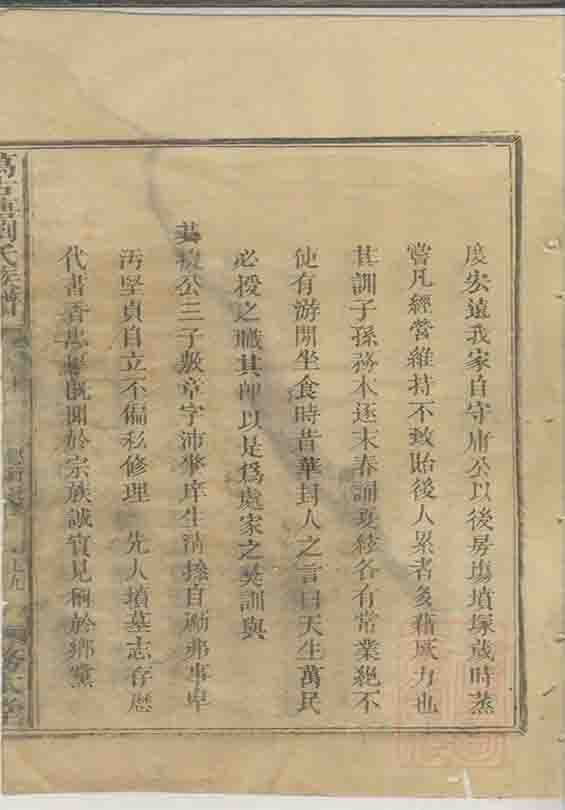 度宏遠我家自守庸公以後房塲墳塚歲時蒸
嘗凡經營維持不致貽後人累者多藉厥力也
其訓子孫務本逐末春誦夏絃各有常業絕不
使有游閒坐食時昔華封人之言曰天生萬民
必授之職其即以是爲處家之英訓與
公三子數章字沛 庠生清操自勵鄙事卑
汚堅貞自立不偏私修理 先人墳墓志存
代書香忠厚 聞於宗族誠實見稱於鄉黨
劉氏族譜